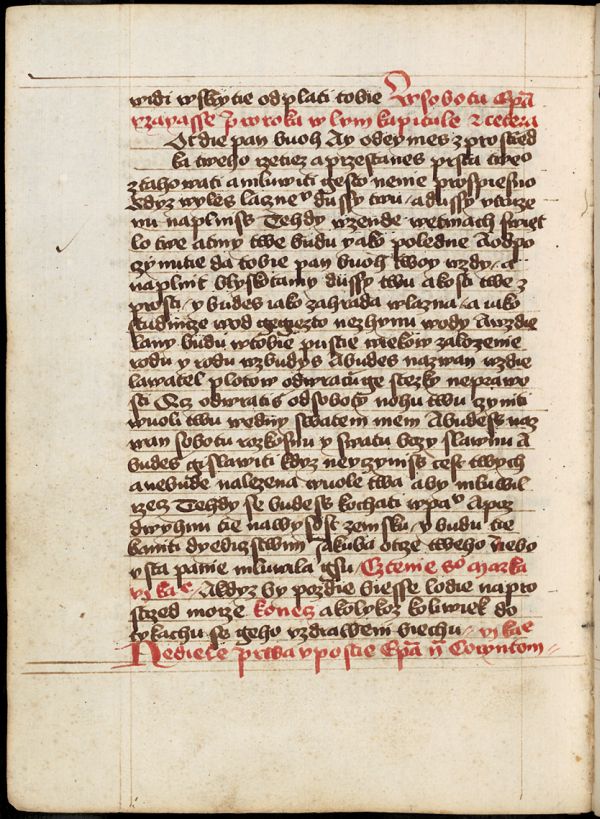 widi wskrytie odplati tobie W sobotu Epā
yzayasse prwroka w lvm kapitule 2 cetera
Totdie pan buoh Ay odeymes z prostřed
ka twego rzetiez a przestanes prsta tweo
ztahowati a mluwiti gesto nenie prospiesno
kdyz wyles lazne dussy twu / a dussy vtrze
nu naplniss Tehdy wzende wetmach swiet
lo twe a tmy twe budu yako poledne A odpo
czynutie da tobie pan buoh twoy wzdy / a
naplnit blyskotamy dussy twu a kosti twe z
prosti / y budes iako zahrada wlazna / a iako
studnicze wod gegiezto nezhynu wody A wzdie
lany budu w tobie pustie wiekow zalozenie
rodu y rodu wzbudys A budes nazwan wzdie
lawatel plotow odwracuge stezky neprawo
sti Acz odwratis od soboty nohu twu czyniti
wuoli twu w edny swatem mem A budess naz
wan sobotu rozkosnu y swatu bozy slawnu A
budes geslawiti kdyz neyczyniss cest twych
a nebude nalezena wuole twa aby mluwil
rzecz Tehdy se budess kochati w pau A poz
dwyhnu tie na wysost zemsku / y budu tie
kamiti dyedizstwim Jakuba otcze tweho nebo
vsta panie mluwila gsu Cztenie so Marka
vi ka A kdyz by pozdie biesse lodie napro
strzed morze konecz a kolykoz koliwiek do
tykachu se geho vzdraweni biechu / vi kae
Nediele prwa v postie Epā ij Corintom